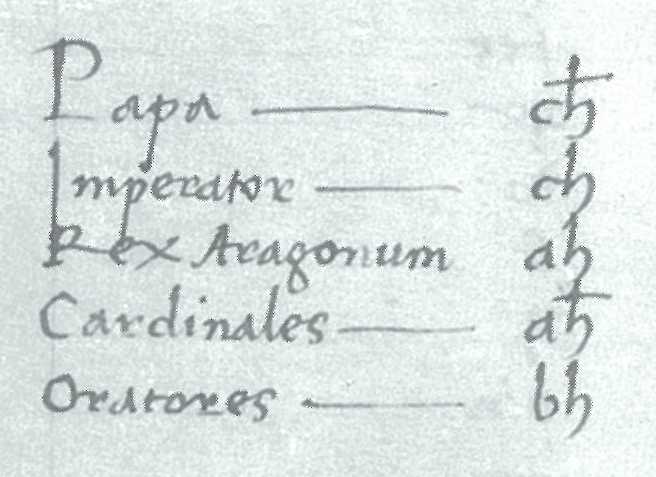 Papa — cħ
Imperator — ch
Rex Aragonum ah
Cardinales — aħ
Oratores — bh